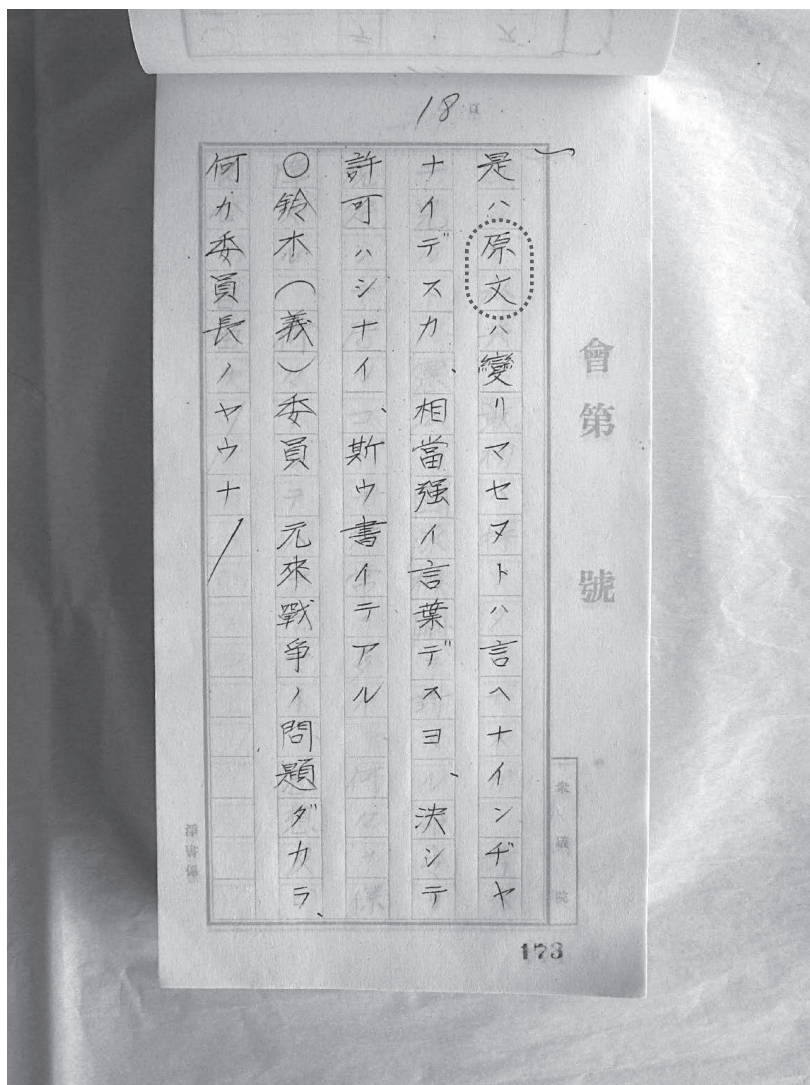 18頁
會第 號
是ハ原文ハ變リマセヌトハ言ヘナインヂヤ
ナイデスカ、相當強イ言葉デスヨ、決シテ
許可ハシナイ、斯ウ書イテアル
○鈴木(義)委員 元來戰爭ノ問題ダカラ、
何カ委員長ノヤウナ
衆議院
淨書係
173